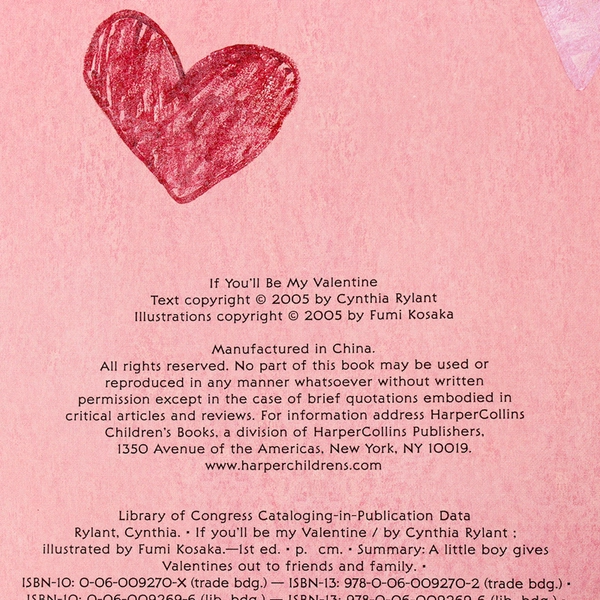 If You'll Be My Valentine
Text copyright © 2005 by Cynthia Rylant
Illustrations copyright © 2005 by Fumi Kosaka
Manufactured in China.
All rights reserved. No part of this book may be used or
reproduced in any manner whatsoever without written
permission except in the case of brief quotations embodied in
critical articles and reviews. For information address HarperCollins
Children's Books, a division of HarperCollins Publishers,
1350 Avenue of the Americas, New York, NY 10019.
www.harperchildrens.com
Library of Congress Cataloging-in-Publication Data
Rylant, Cynthia. • If you'll be my Valentine / by Cynthia Rylant ;
illustrated by Fumi Kosaka.—1st ed. • p. cm. • Summary: A little boy gives
Valentines out to friends and family. •
ISBN-10: 0-06-009270-X (trade bdg.) — ISBN-13: 978-0-06-009270-2 (trade bdg.) •
ISBN-10: 0-06-009269-6 (lib. bdg.) — ISBN-13: 978-0-06-009269-6 (lib. bdg.) •